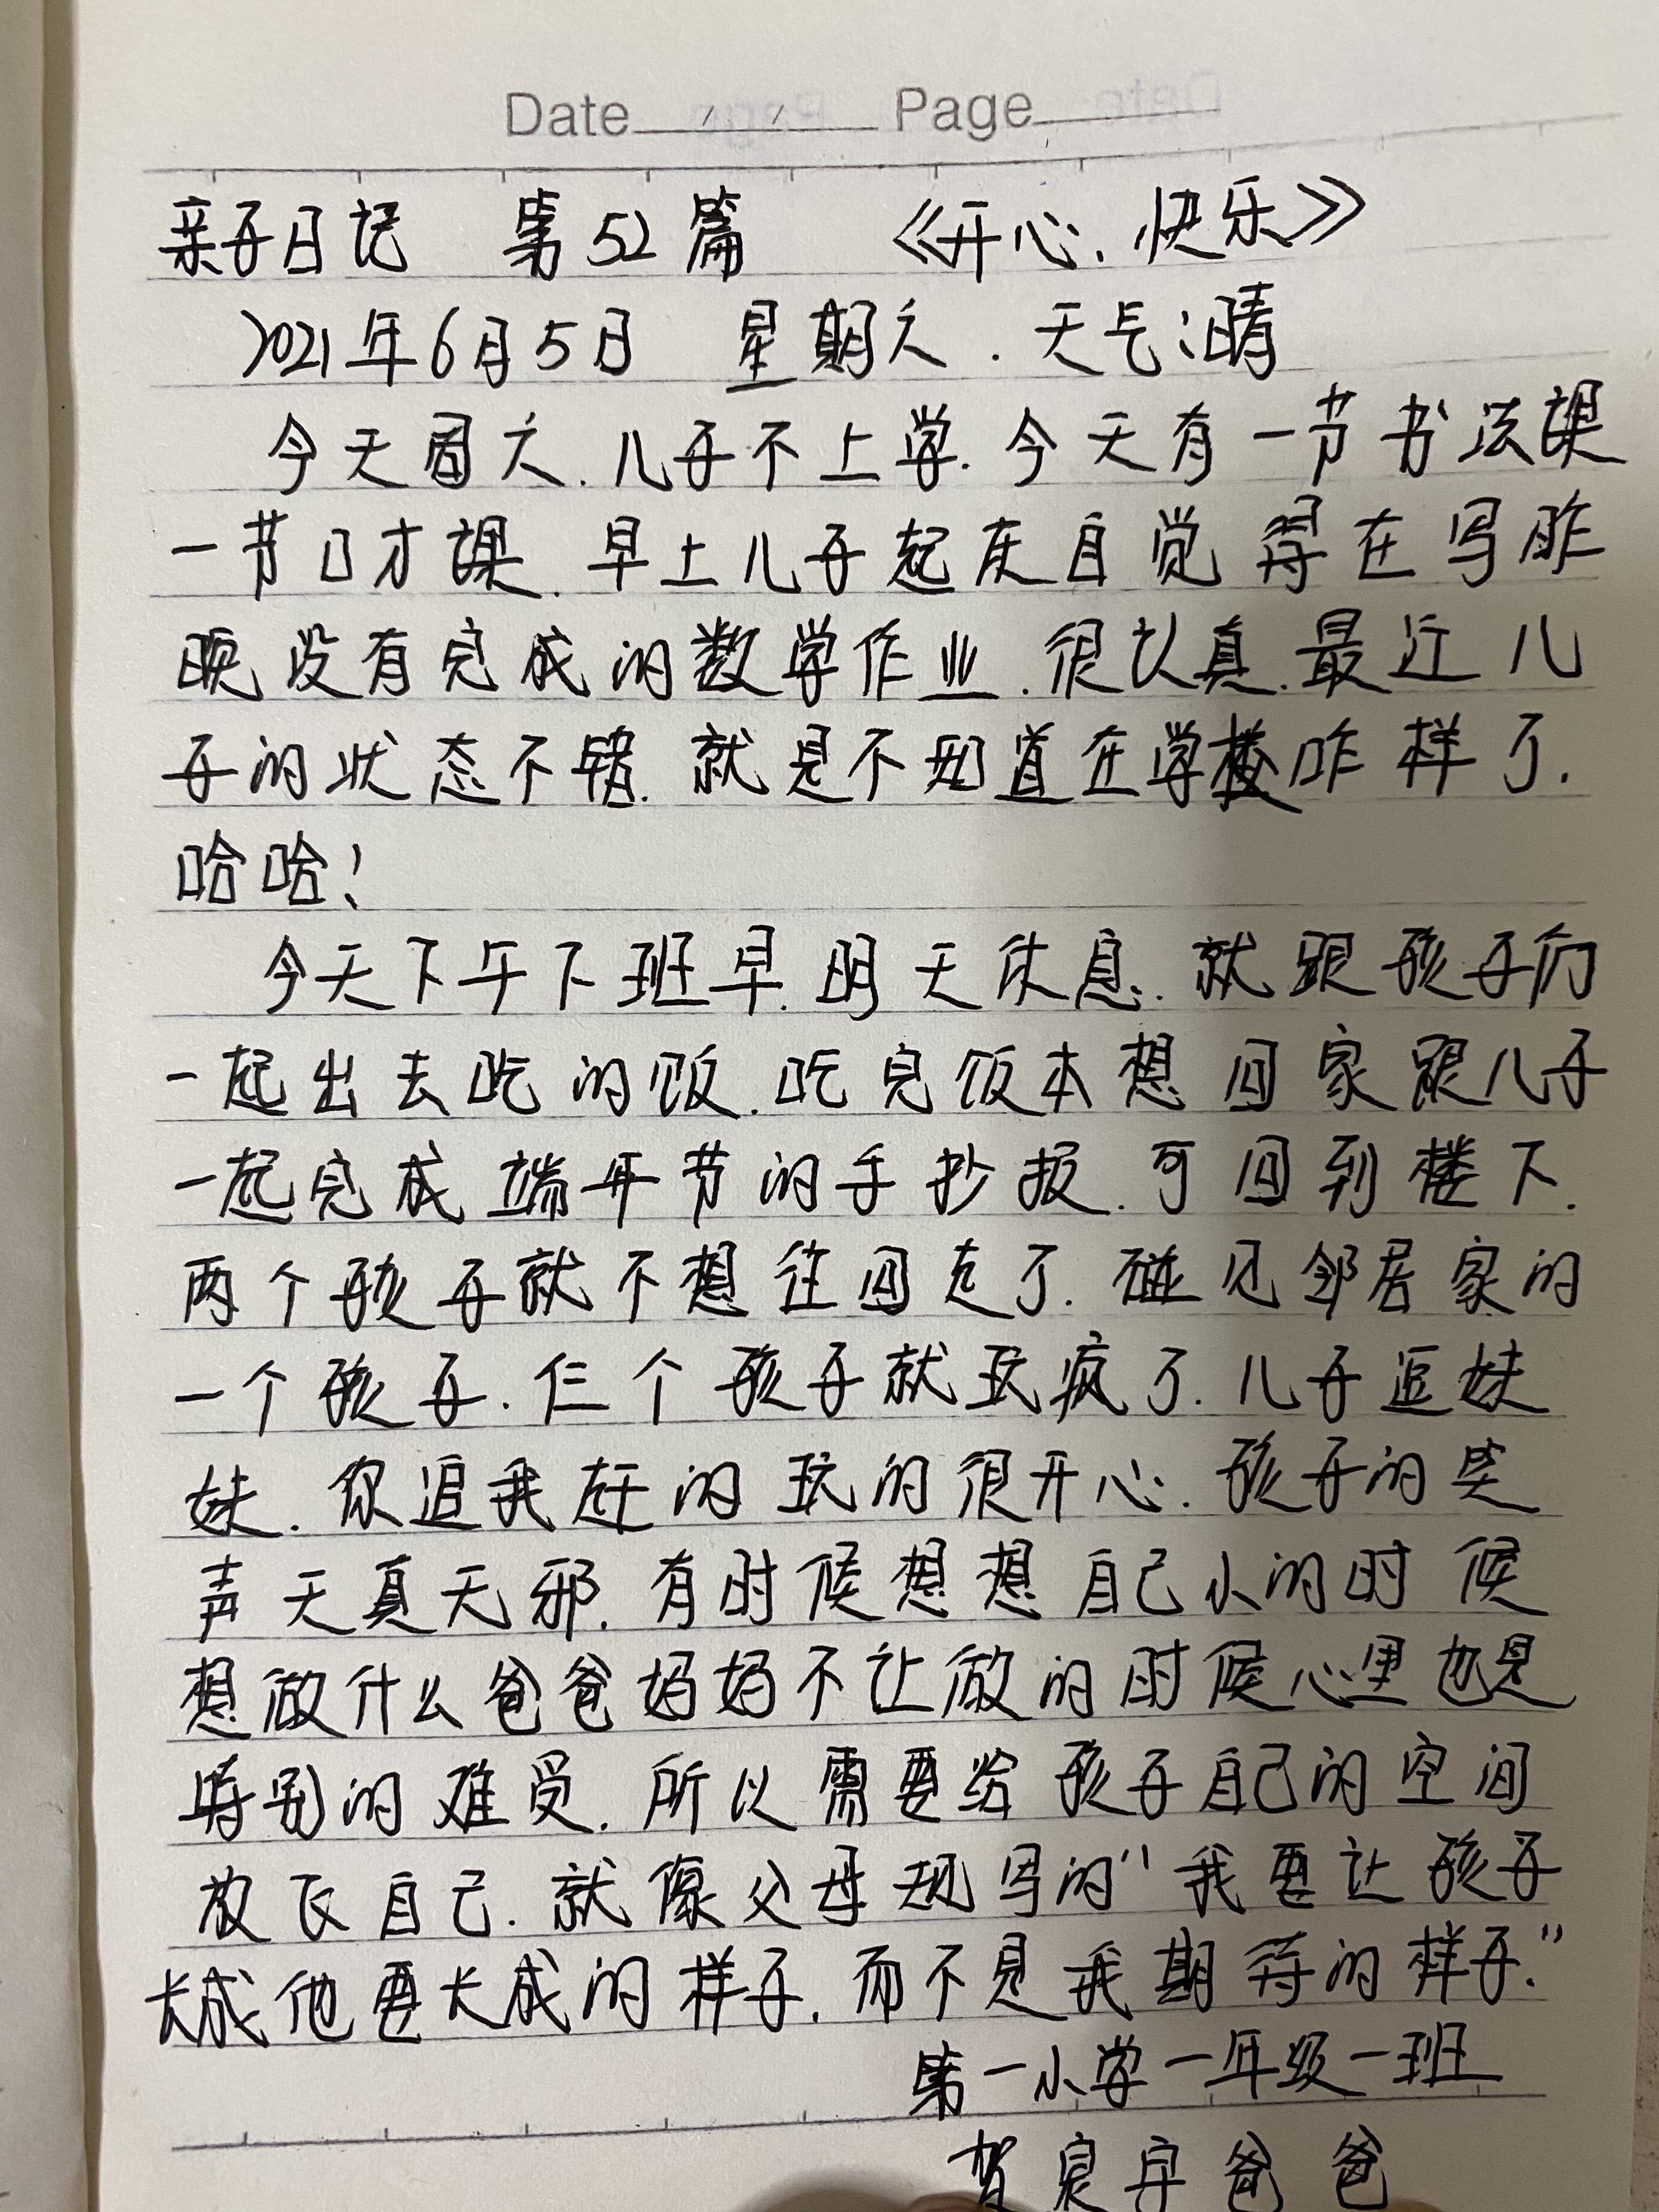 Date / / Page
亲子日记 第52篇 《开心、快乐》
2021年6月5日 星期六.天气:晴
今天周六.儿子不上学.今天有一节书法课
一节口才课.早上儿子起床自觉得在写昨
晚没有完成的数学作业.很认真.最近儿
子的状态不错.就是不知道在学校咋样了.
哈哈!
今天下午下班早.明天休息.就跟孩子们
一起出去吃的饭.吃完饭本想回家跟儿子
一起完成端午节的手抄报.可回到楼下.
两个孩子就不想往回走了.碰见邻居家的
一个孩子.仨个孩子就玩疯了.儿子逗妹
妹.你追我赶的玩的很开心.孩子的笑
声天真无邪.有时候想想自己小的时候
想做什么爸爸妈妈不让做的时候心里也是
特别的难受.所以需要给孩子自己的空间
放飞自己.就像父母规写的“我要让孩子
长成他要长成的样子.而不是我期待的样子.”
第一小学一年级一班
贺 宇爸爸